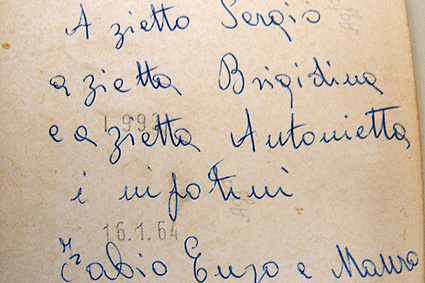 A zietto Sergio
a zietta Brigidina
e a zietta Antonietta
i nipotini
16.1.64
Fabio Enzo e Mauro